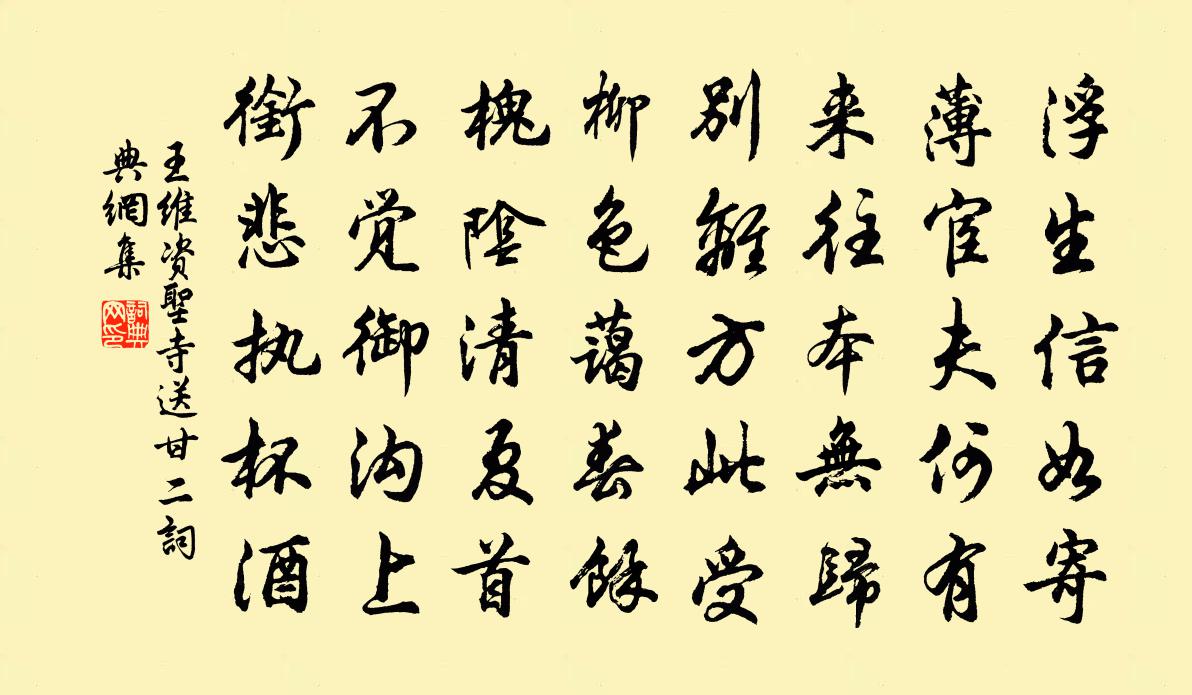 浮生信如寄
薄宦夫何有
来往本無歸
別離方此受
柳色藹春餘
槐陰清夏首
不觉御沟上
銜悲执杯酒
王維资聖寺送甘二詞
典網集
詞典
网印